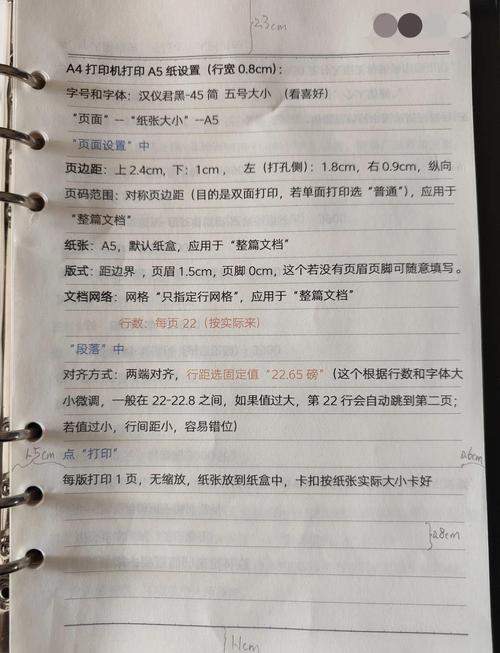 2.3cm
A4打印机打印A5纸设置（行宽0.8cm）：
字号和字体：汉仪君黑-45简 五号大小 （看喜好）
“页面”--“纸张大小”--A5
“页面设置”中
页边距：上2.4cm，下：1cm， 左（打孔侧）：1.8cm，右0.9cm，纵向
页码范围：对称页边距（目的是双面打印，若单面打印选“普通”），应用于
“整篇文档”
纸张：A5，默认纸盒，应用于“整篇文档”
版式：距边界 ，页眉1.5cm，页脚0cm，这个若没有页眉页脚可随意填写。
文档网络：网格“只指定行网格”，应用于“整篇文档”
行数：每页22（按实际来）
“段落”中
对齐方式：两端对齐，行距选固定值“22.65磅”（这个根据行数和字体大
小微调，一般在22-22.8之间，如果值过大，第22行会自动跳到第二页；
若值过小，行间距小，容易错位）
1.5cm 点“打印” 0.6cm
每版打印1页，无缩放，纸张放到纸盒中，卡扣按纸张实际大小卡好
0.8cm
1.1cm